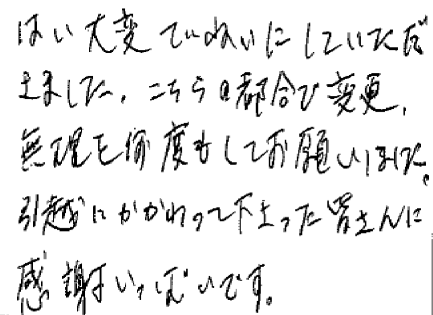 はい大変ていねいにしていただ
きました。こちらの都合で変更、
無理を何度もしてお願いしました。
引越にかかわって下さった皆さんに
感謝でいっぱいです。